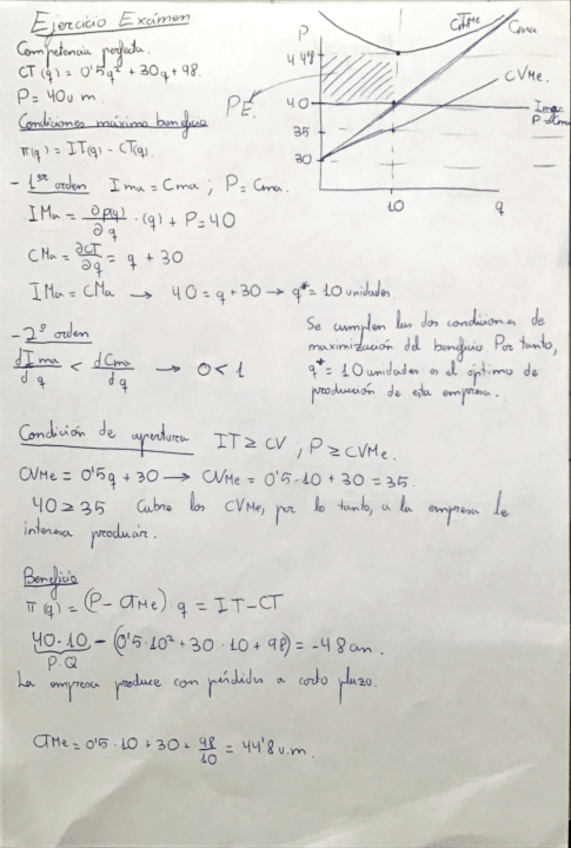 Ejercicio Exámen
Competencia perfecta.
CT(q) = 0'5q² + 30q + 98.
P = 40 u m.
Condiciones máximo beneficio
π(q) = IT(q) - CT(q).
P
44'8
40
35
30
10
q
CTMe
Cma
CVMe.
Ima=
P=Cma
PE.
- 1er orden Ima = Cma ; P = Cma.
IMa = ∂p(q)/∂q · (q) + P = 40
CMa = ∂CT/∂q = q + 30
IMa = CMa → 40 = q + 30 → q* = 10 unidades.
- 2º orden
dIma/dq < dCma/dq → 0 < 1
Se cumplen las dos condiciones de
maximización del beneficio Por tanto,
q* = 10 unidades es el óptimo de
producción de esta empresa.
Condición de apertura IT ≥ CV ; P ≥ CVMe.
CVMe = 0'5q + 30 → CVMe = 0'5·10 + 30 = 35.
40 ≥ 35 Cubre los CVMe, por lo tanto, a la empresa le
interesa producir.
Beneficio
π(q) = (P - CTMe) · q = IT - CT
40·10 - (0'5·10² + 30·10 + 98) = -48 um.
P·Q
La empresa produce con pérdidas a corto plazo.
CTMe = 0'5·10 + 30 + 98/10 = 44'8 u.m.